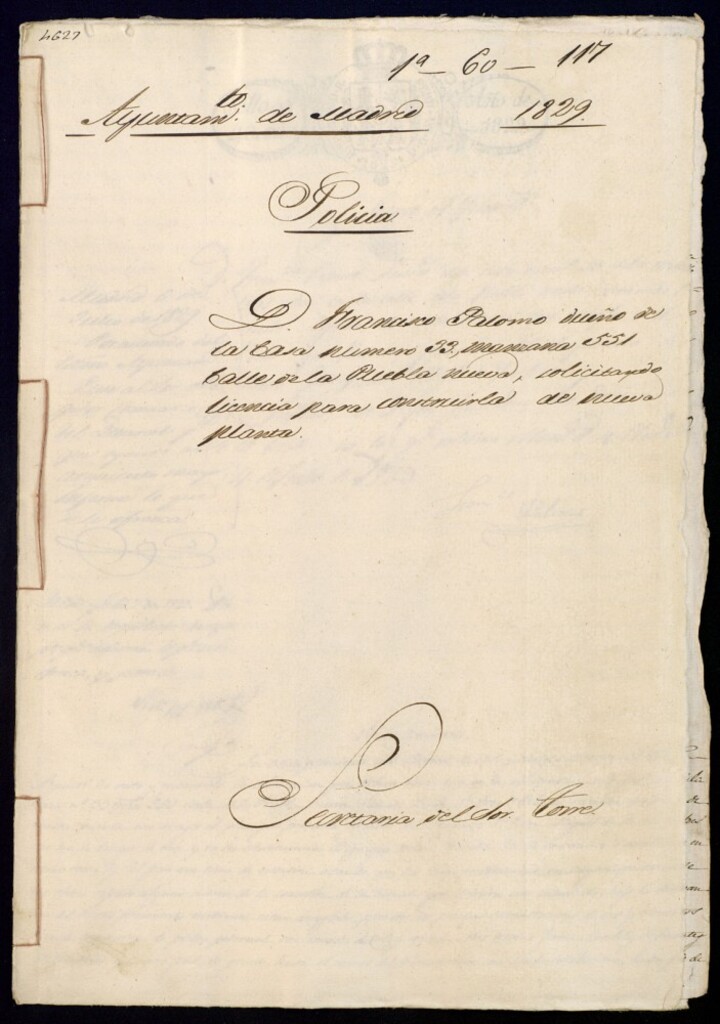 4627
1ª - 60 - 117
Ayuntam.to de Madrid 1829.
Policia
D. Francisco Palomo dueño de
la Casa numero 33, manzana 551
Calle de la Puebla nueva, solicitando
licencia para construirla de nueva
planta.
Secretaria del Sor. Torre.